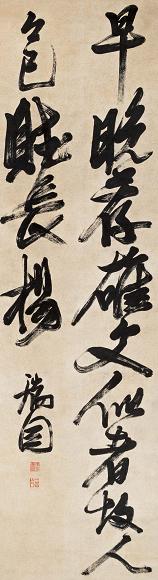 早晚荐雄文似者故人
今已賦長楊
瑞圖